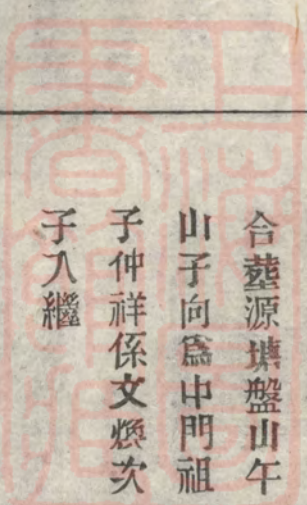 合葬源塘盤山午
山子向爲中門祖
子仲祥係文煥次
子入繼